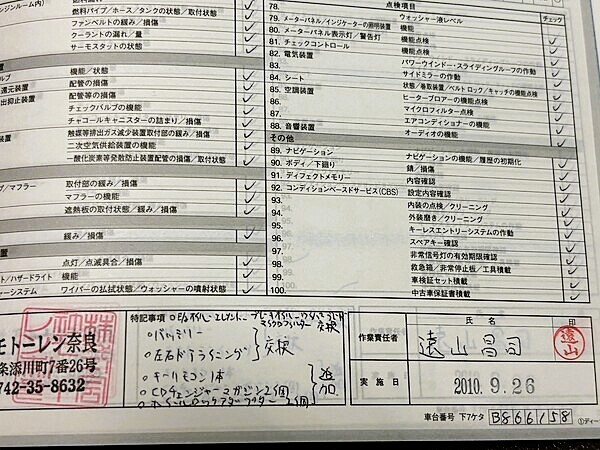 点検項目
チェック
78.
燃料パイプ/ホース/タンクの状態/取付状態
79. メーターパネル/インジケーターの照明装置
ウォッシャー液レベル
ファンベルトの緩み/損傷
80. メーターパネル表示灯/警告灯
機能
クーラントの漏れ/量
81. チェックコントロール
機能点検
サーモスタットの状態
82. 電気装置
機能点検
83.
パワーウインドー・スライディングルーフの作動
機能/状態
84. シート
サイドミラーの作動
還元装置
配管の損傷
85. 空調装置
状態/巻取装置/ベルトロック/キャッチの機能点検
出抑止装置
配管等の損傷
86.
ヒーターブロアーの機能点検
チェックバルブの機能
87.
マイクロフィルター点検
チャコールキャニスターの詰まり/損傷
エアコンディショナーの機能
触媒等排出ガス減少装置取付部の緩み/損傷
88. 音響装置
オーディオの機能
二次空気供給装置の機能
その他
一酸化炭素等発散防止装置配管の損傷/取付状態
89. ナビゲーション
ナビゲーションの機能/履歴の初期化
90. ボディ/下廻り
錆/損傷
プ/マフラー
取付部の緩み/損傷
91. ディフェクトメモリー
内容確認
マフラーの機能
92. コンディションベースドサービス(CBS)
設定内容確認
遮熱板の取付状態/緩み/損傷
93.
内装の点検/クリーニング
94.
外装磨き/クリーニング
95.
キーレスエントリーシステムの作動
緩み/損傷
96.
スペアキー確認
97.
非常信号灯の有効期限確認
点灯/点滅具合/損傷
98.
救急箱/非常停止板/工具積載
ト/ハザードライト
機能
99.
車検証セット積載
ーシステム
ワイパーの払拭状態/ウォッシャーの噴射状態
100.
中古車保証書積載
特記事項
モトーレン奈良
条添川町7番26号
742-35-8632
○バッテリー
○左右ドアライニング
交換
○キーリモコン1本
○CDチェンジャーマガジン2個
作業責任者
氏名
印
遠山昌司
遠山
実施日
2010. 9. 26
車台番号 下7ケタ
B866158